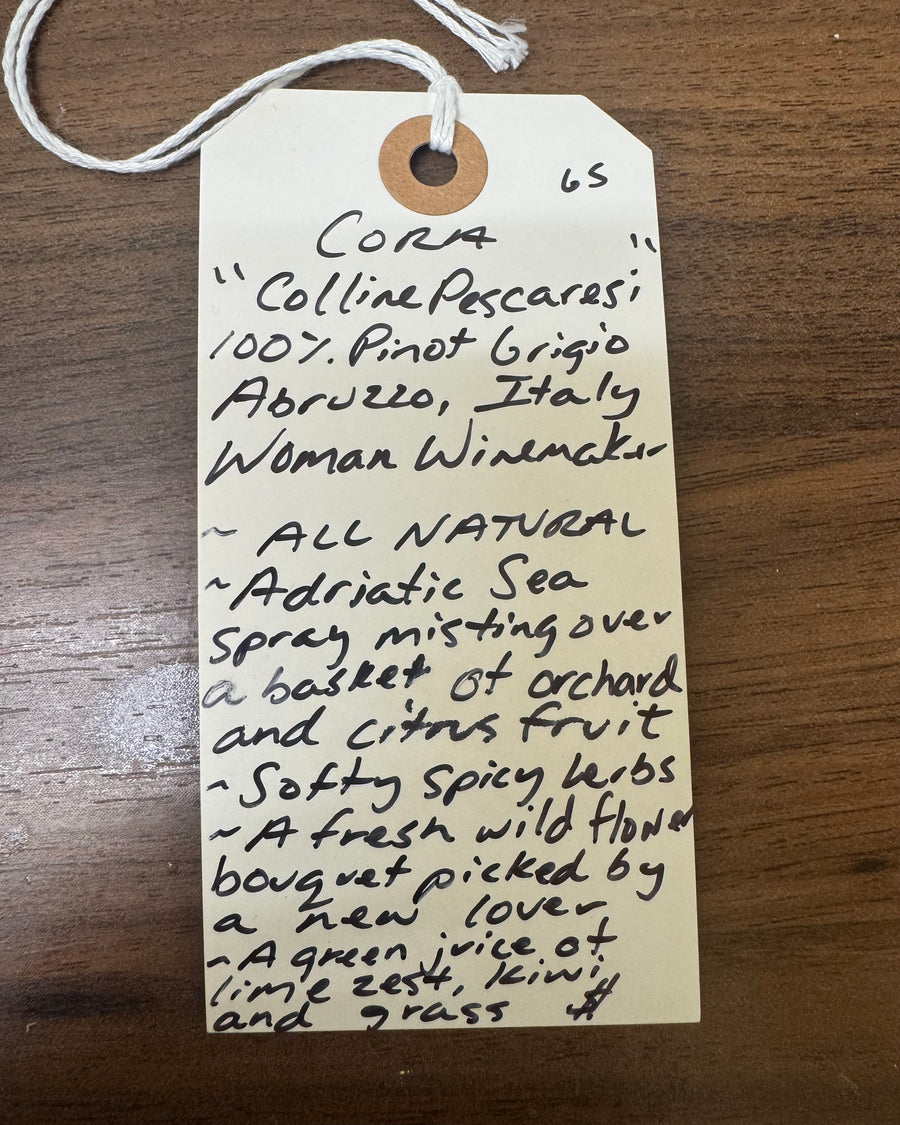 65
CORA
"Colline Pescaresi"
100% Pinot Grigio
Abruzzo, Italy
Woman Winemaker
~ ALL NATURAL
~ Adriatic Sea
spray misting over
a basket of orchard
and citrus fruit
~ Softy spicy herbs
~ A fresh wild flower
bouquet picked by
a new lover
~ A green juice of
lime zest, kiwi,
and grass $